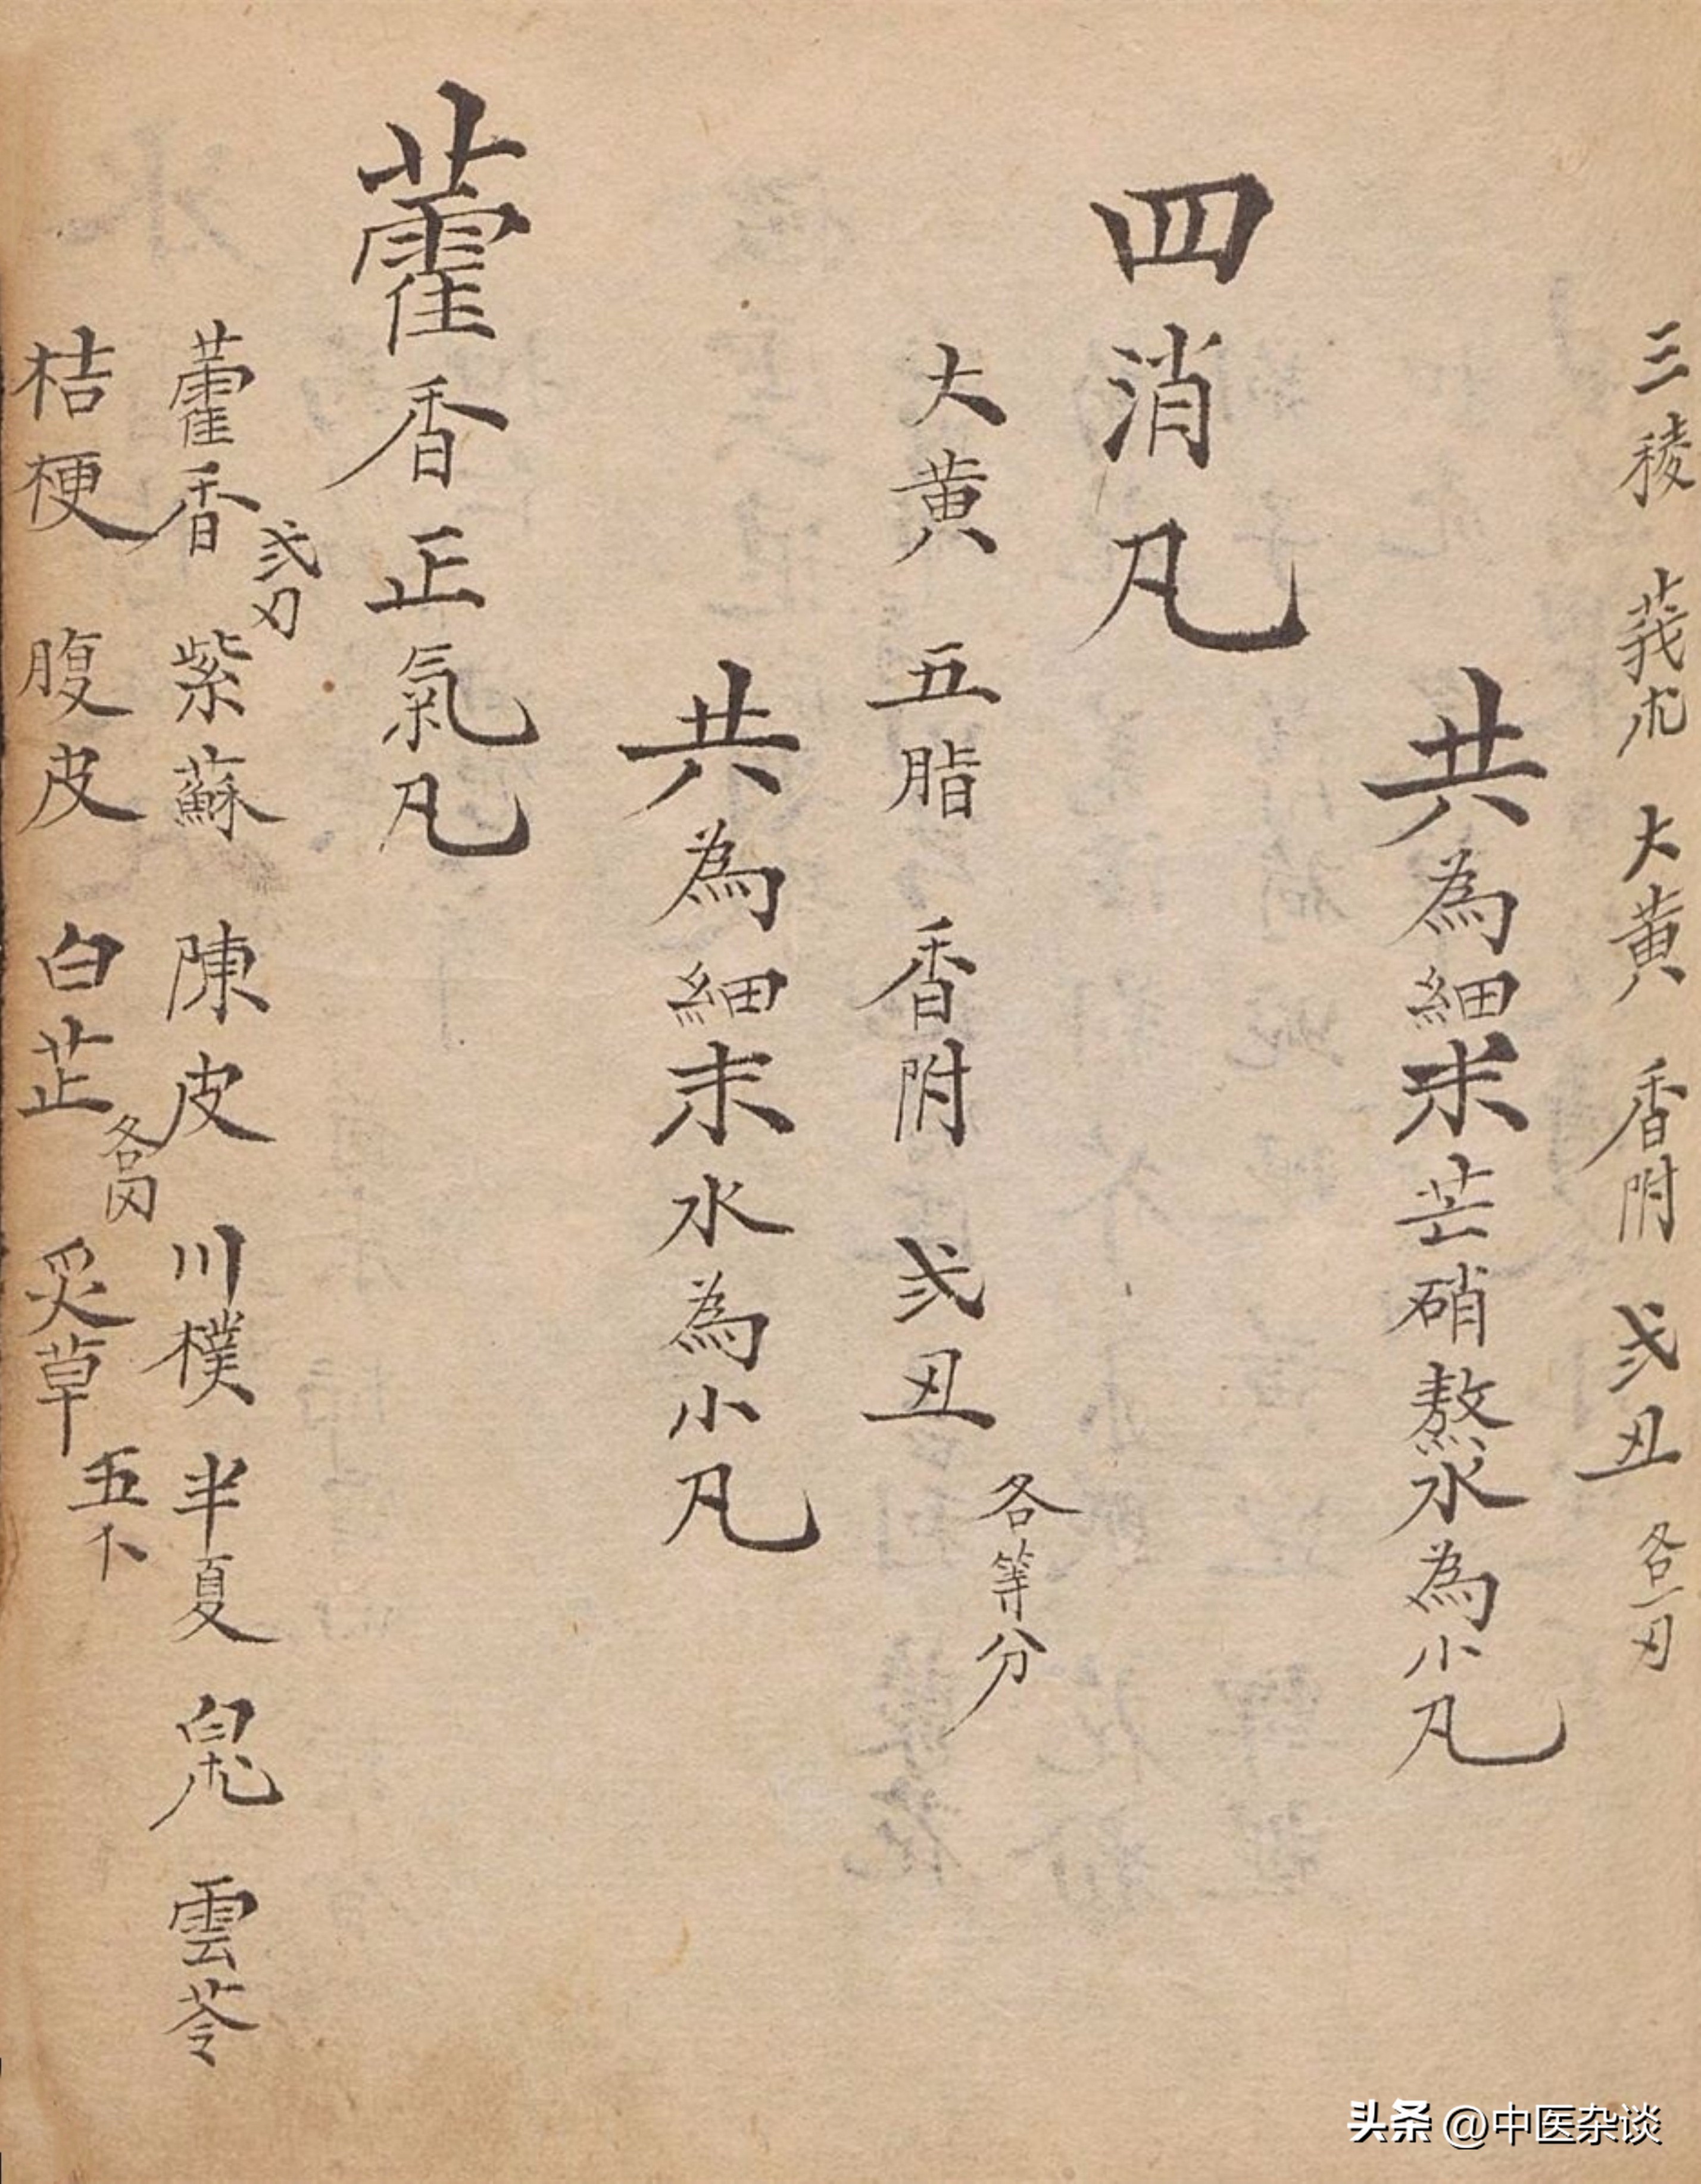 三稜 莪朮 大黄 香附 弍丑 各一刃
共為細末芒硝熬水為小凡
四消凡
大黄 五脂 香附 弍丑 各等分
共為細末水為小凡
藿香正氣凡
藿香 弍刃 紫蘇 陳皮 川樸 半夏 雲苓
桔梗 腹皮 白芷 炙草 五
头条 @中医杂谈